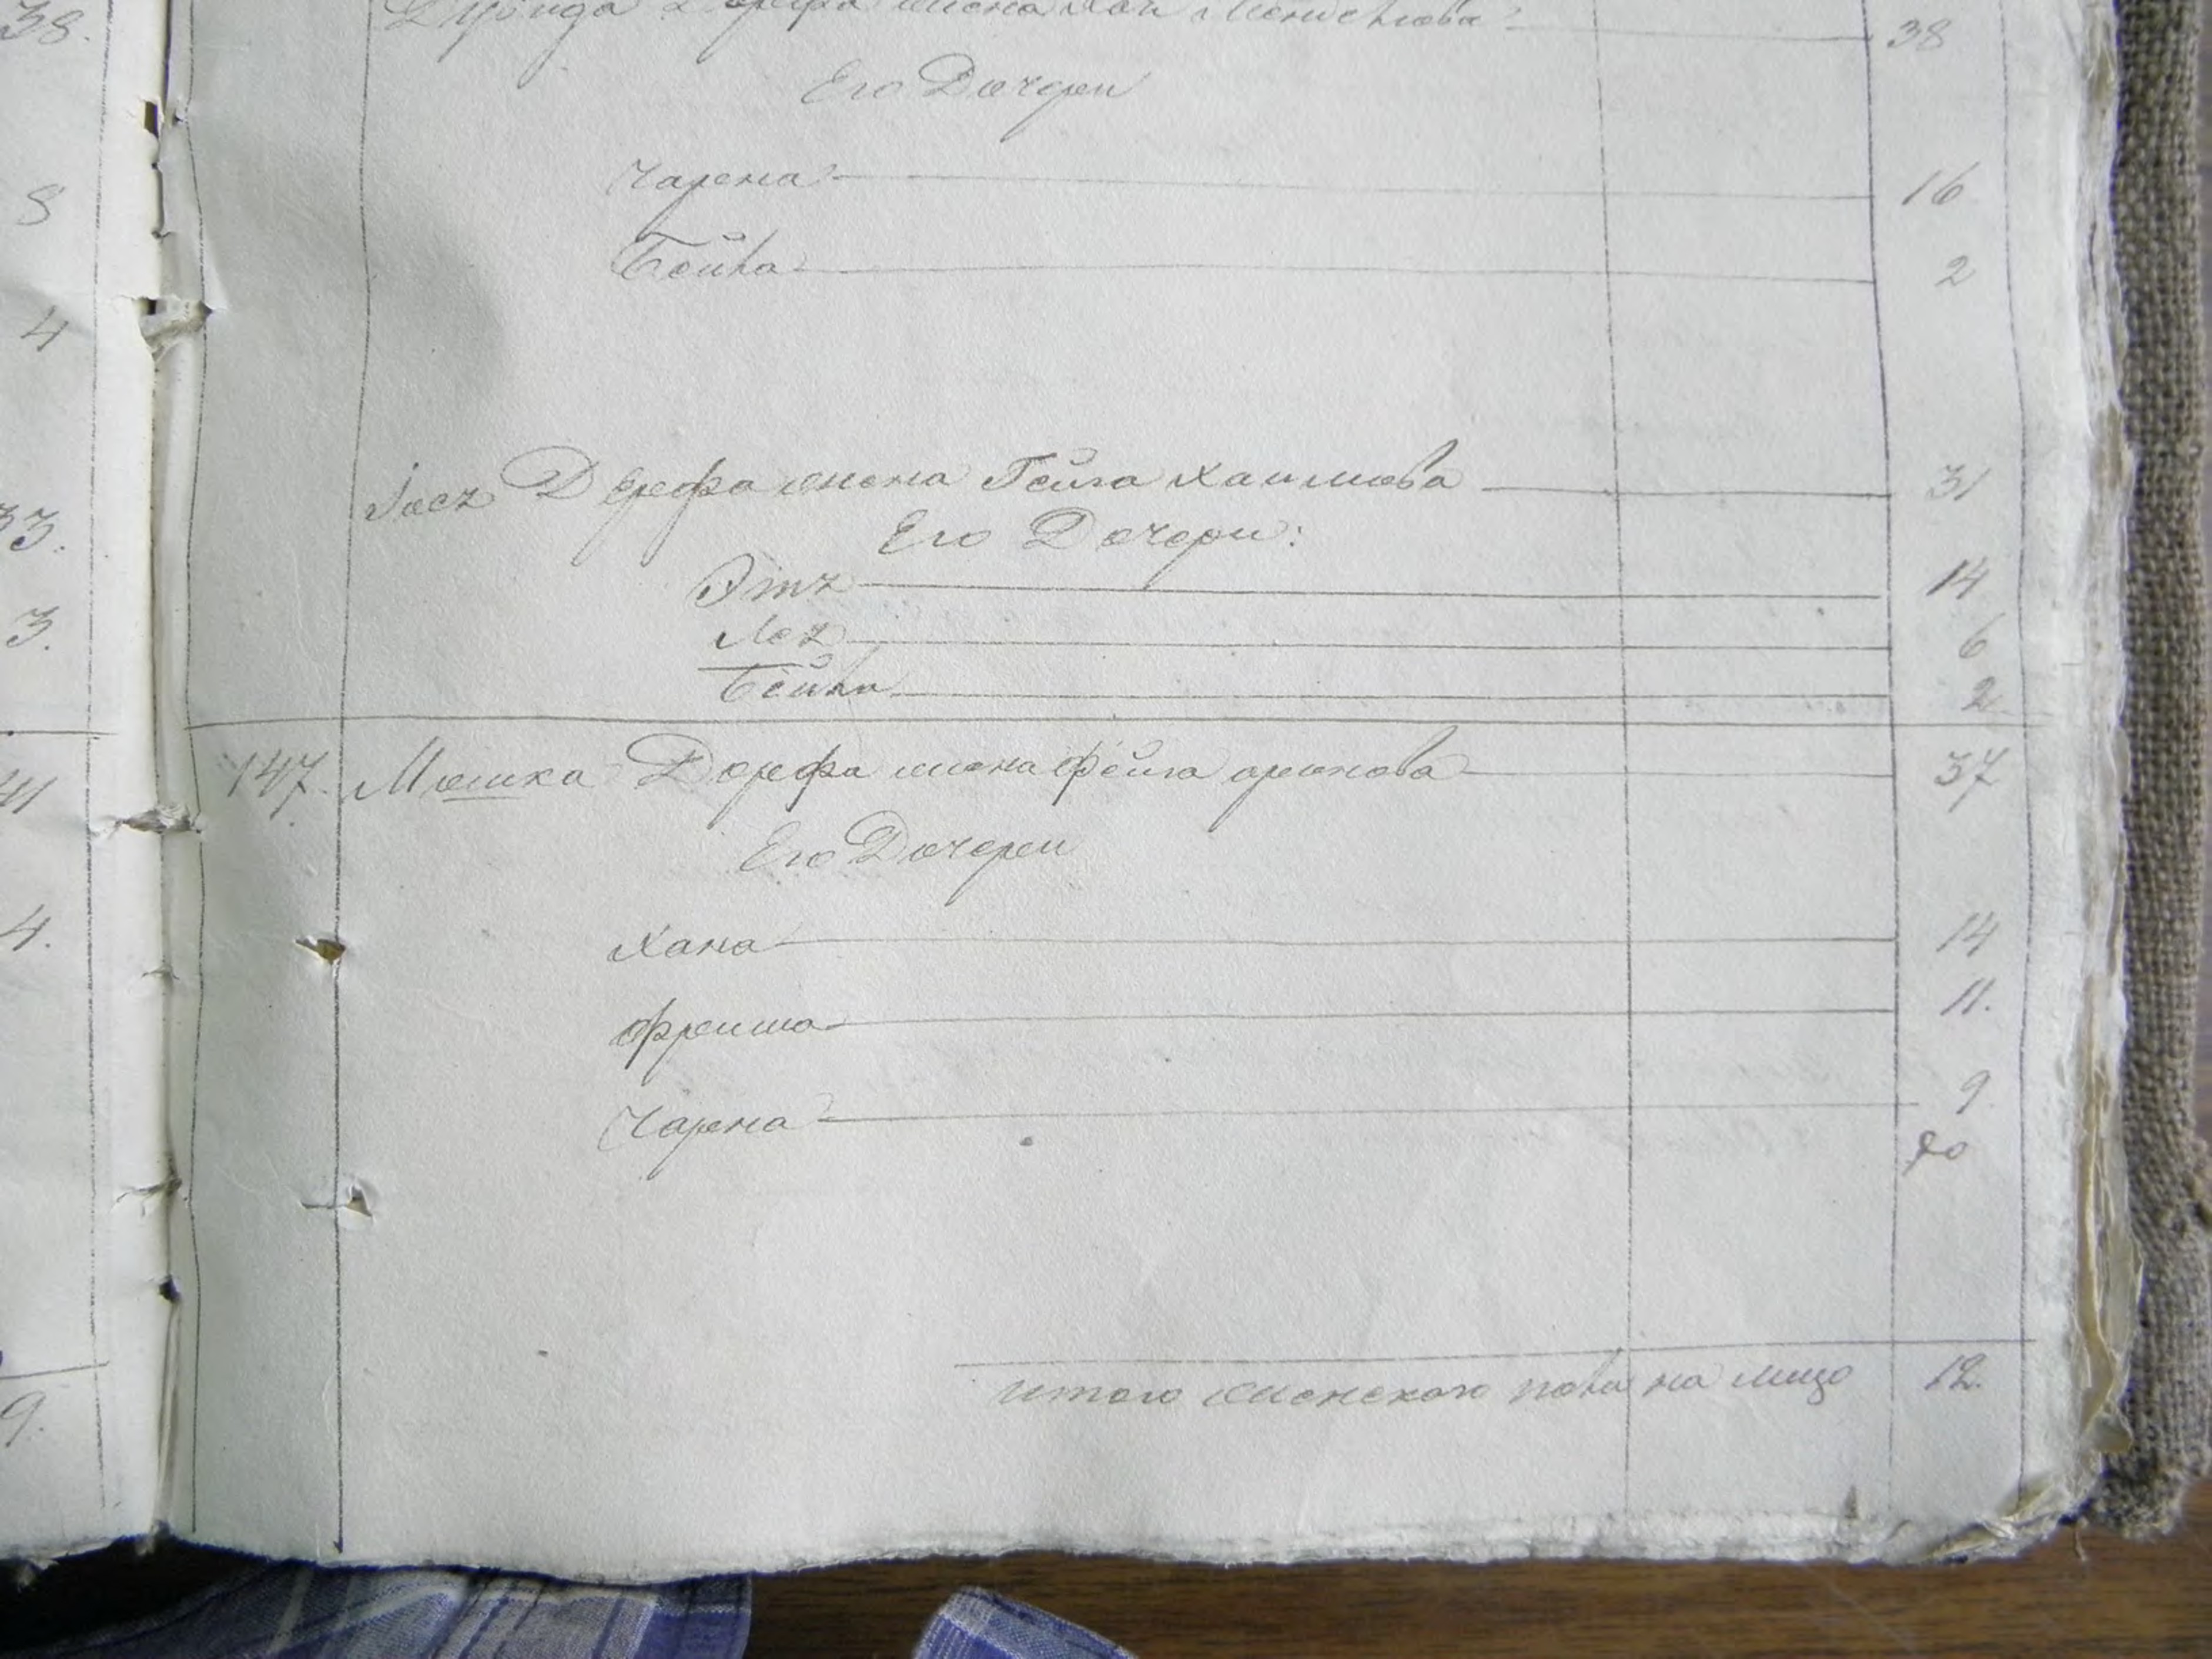 38.
8
4
33.
3.
41
4.
9.
Дерфа жена Хая 38
Его Дочери
Чарна 16
Бейла 2
Іосъ Дерфа жена Гейга Хаимова 31
Его Дочери:
Этъ 14
Леъ 6
Бейла 2
147. Мошка Дерфа жена Фейга аронова 37
Его Дочери
Хана 14
Фрейша 11.
Чарна 9.
итого женского пола на лицо 12.